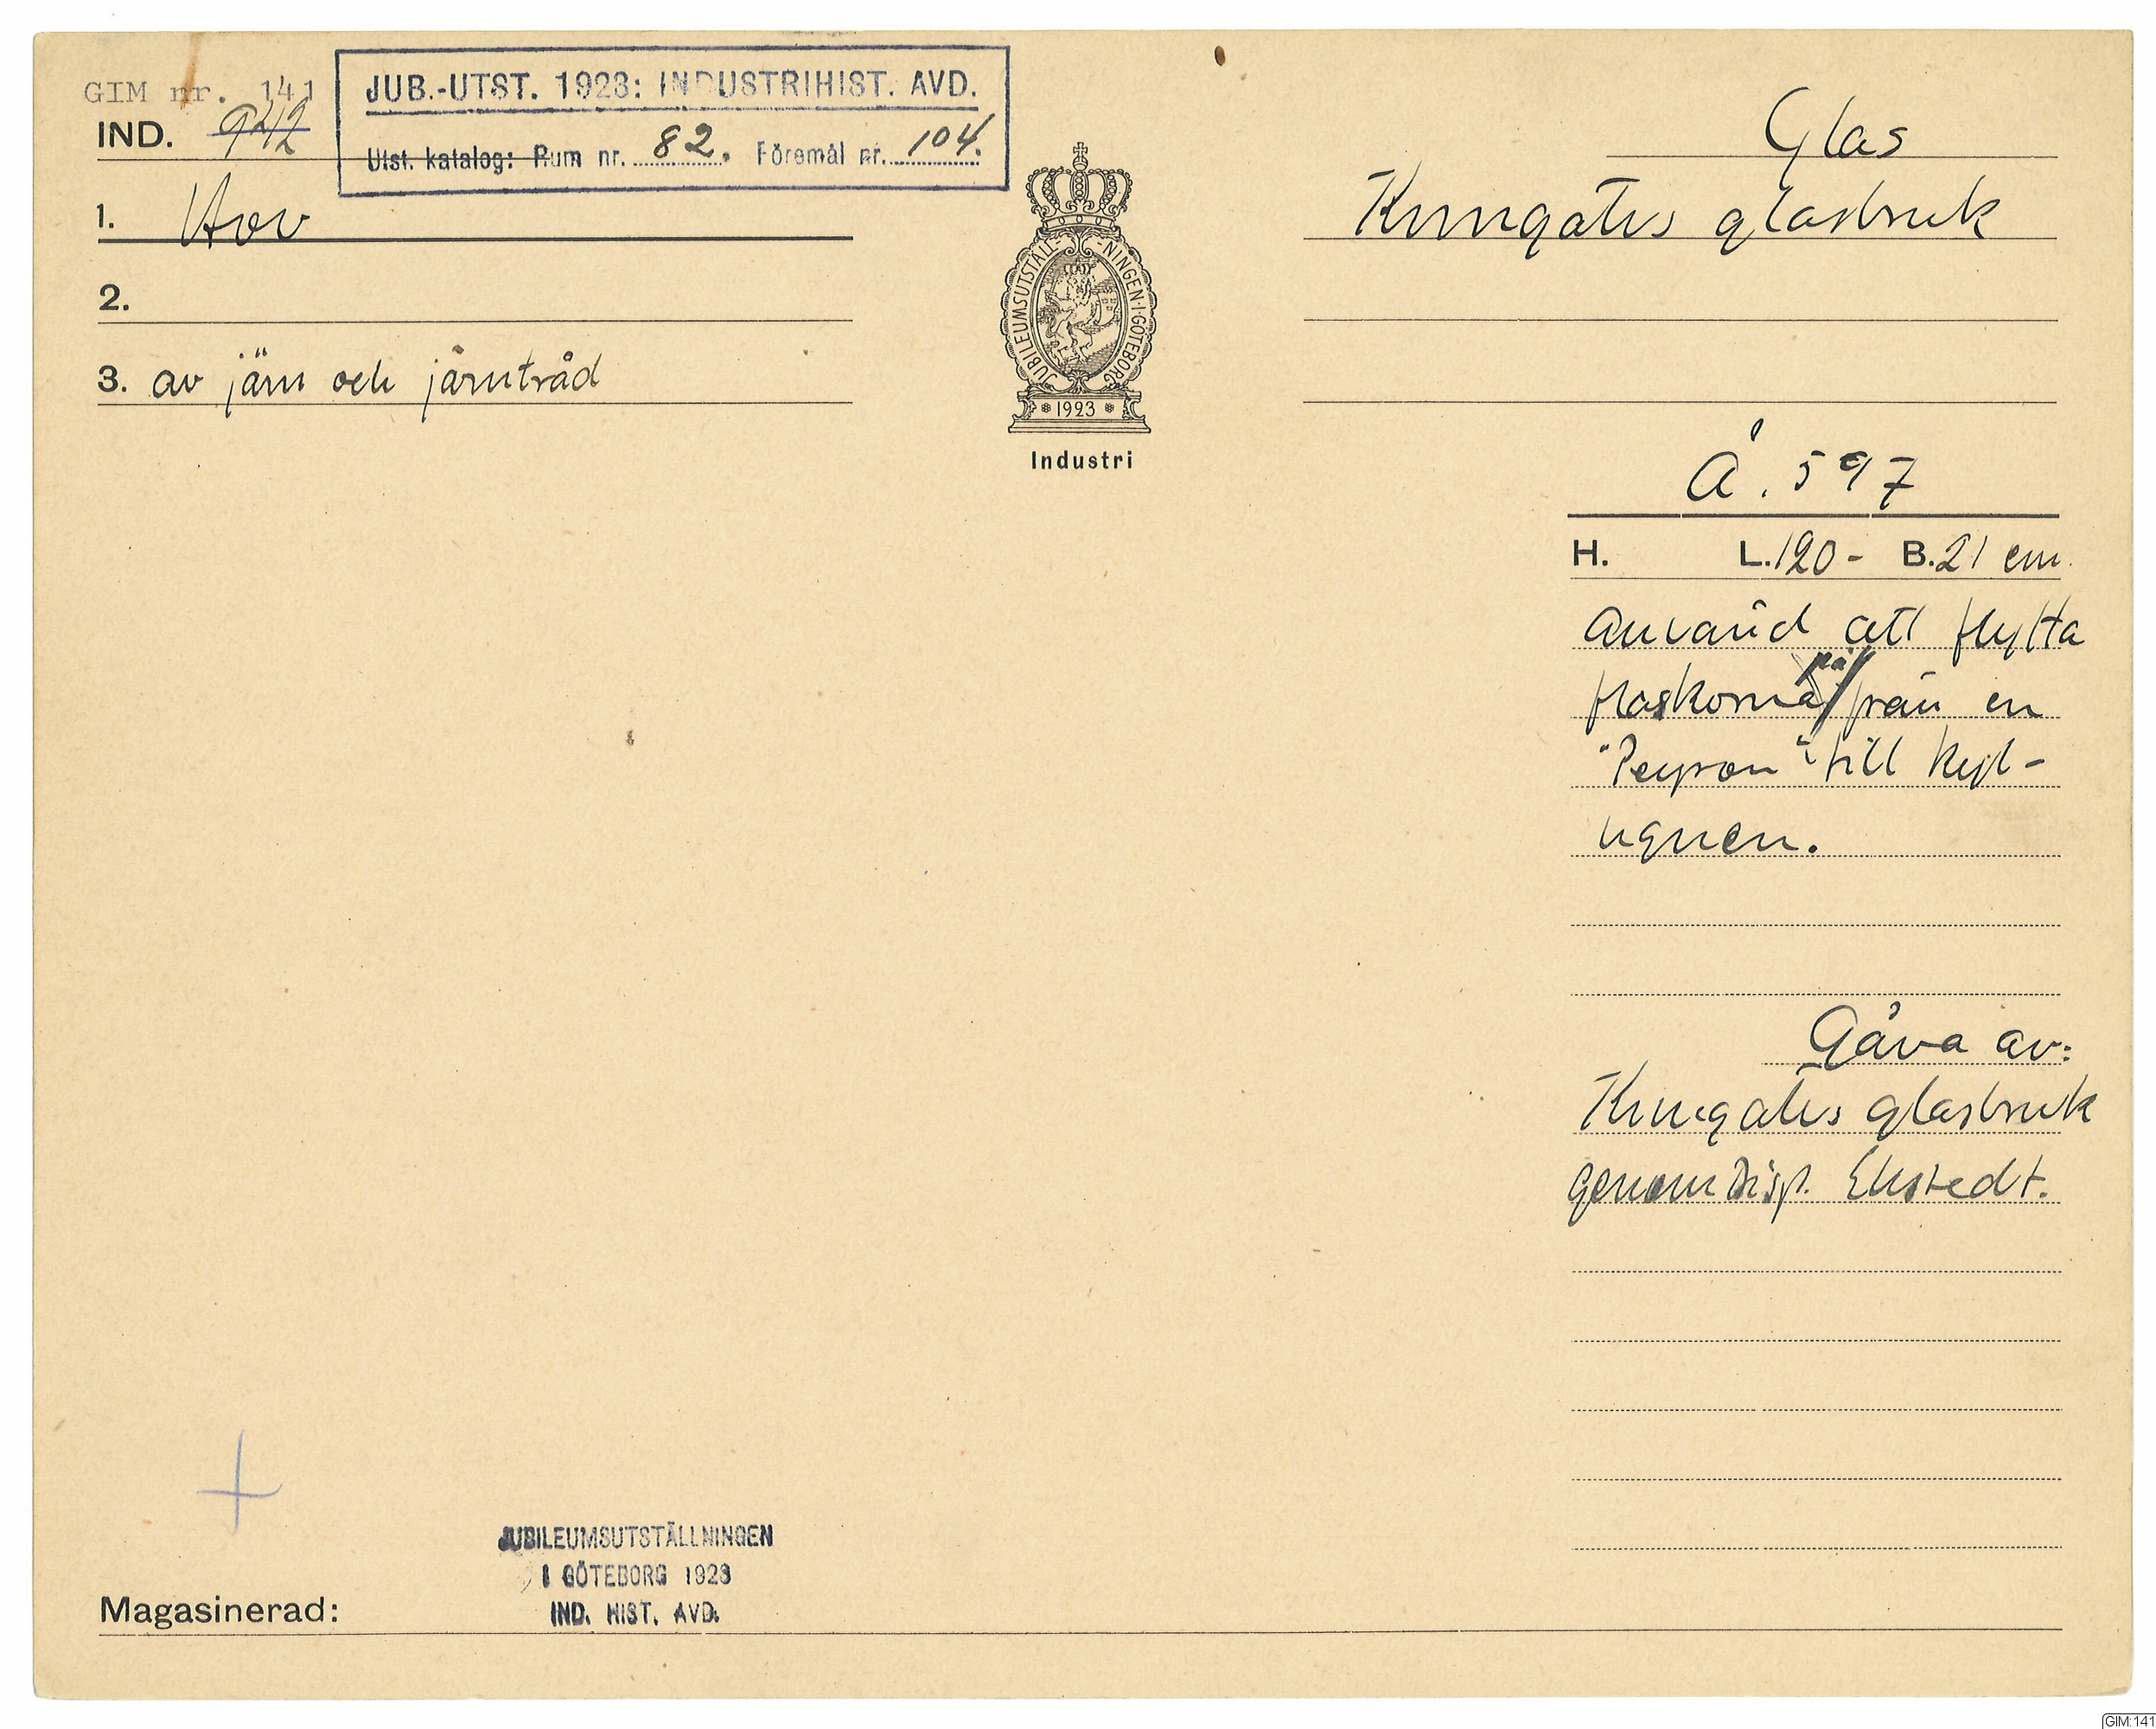 GIM nr. 141
IND. 942
JUB.-UTST. 1923: INDUSTRIHIST. AVD.
Utst. katalog: Rum nr. 82. Föremål nr. 104.
1. Hov
2.
3. av järn och järntråd
JUBILEUMSUTSTÄLL-NINGEN·I·GÖTEBORG
1923
Industri
Glas
Kungälvs glasbruk
Å. 597
H. L. 120 - B. 21 cm.
Använd att flytta
flaskorna på från en
"Peyron" till kyl-
ugnen.
Gåva av:
Kungälvs glasbruk
genom Disp. Ekstedt.
JUBILEUMSUTSTÄLLNINGEN
I GÖTEBORG 1923
IND. HIST. AVD.
Magasinerad:
GIM:141